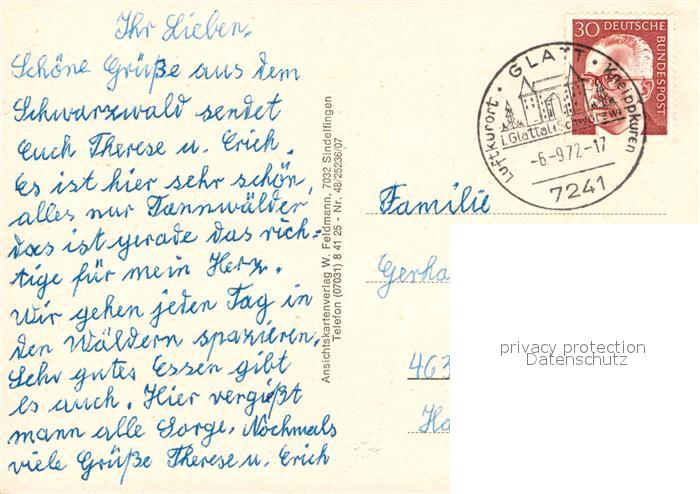 Ihr Lieben.
Schöne Grüße aus dem
Schwarzwald sendet
euch Therese u. Erich.
Es ist hier sehr schön,
alles nur Tannwälder
das ist gerade das rich=
tige für mein Herz.
Wir gehen jeden Tag in
den Wäldern spazieren.
Sehr gutes Essen gibt
es auch. Hier vergißt
mann alle Sorge. Nochmals
viele Grüße Therese u. Erich
Ansichtskartenverlag W. Feldmann, 7032 Sindelfingen
Telefon (07031) 8 41 25 - Nr. 48/25236/07
30 DEUTSCHE
BUNDESPOST
GLATT
Luftkurort · Kneippkuren
i. Glattal i. Schwarzw.
-6.-9.72-17
7241
Familie
Gerha
463
Ha
privacy protection
Datenschutz